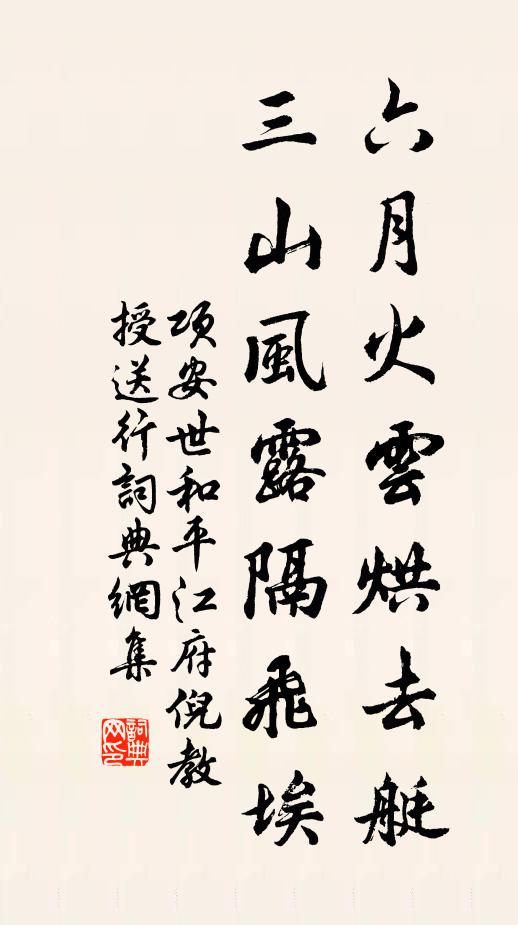 六月火雲烘去艇
三山風露隔飛埃
項安世和平江府倪教
授送行詞典網集
詞典
网印